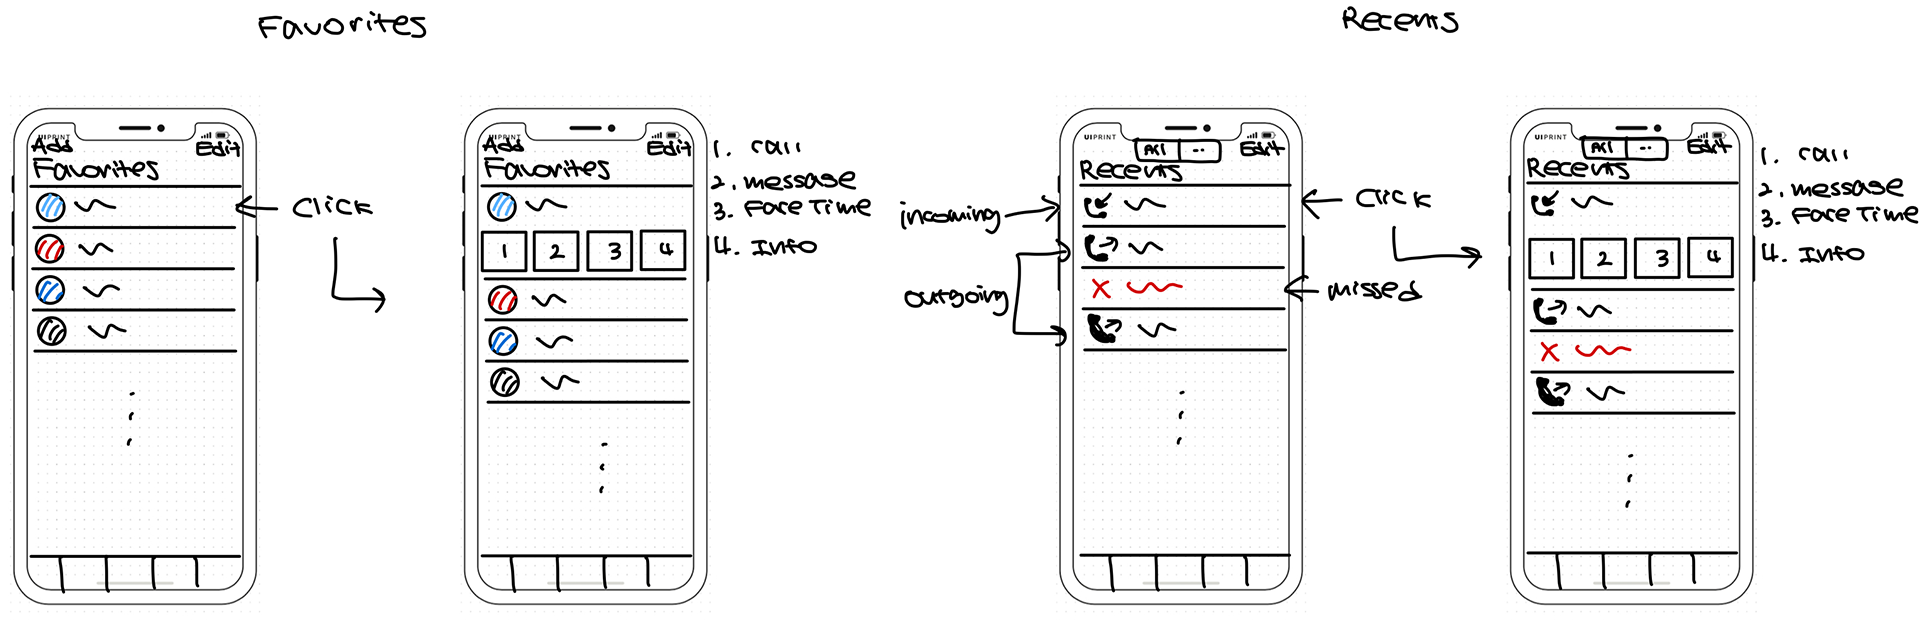 Favorites
Recents
UIPRINT
Add
Edit
Favorites
Click
UIPRINT
Add
Edit
Favorites
1
2
3
4
1. call
2. message
3. FaceTime
4. Info
UIPRINT
All
Edit
Recents
incoming
outgoing
Click
missed
UIPRINT
All
Edit
Recents
1
2
3
4
1. call
2. message
3. FaceTime
4. Info